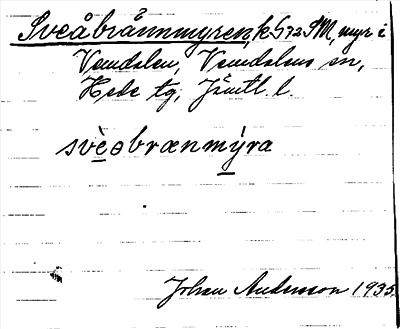 Sveåbrånnmyren, k S 72 SM, myr i
Vemdalen, Vemdalens sn,
Hede tg, Jämtl. l.
svèobrænmýra
Johan Andersson 1935.